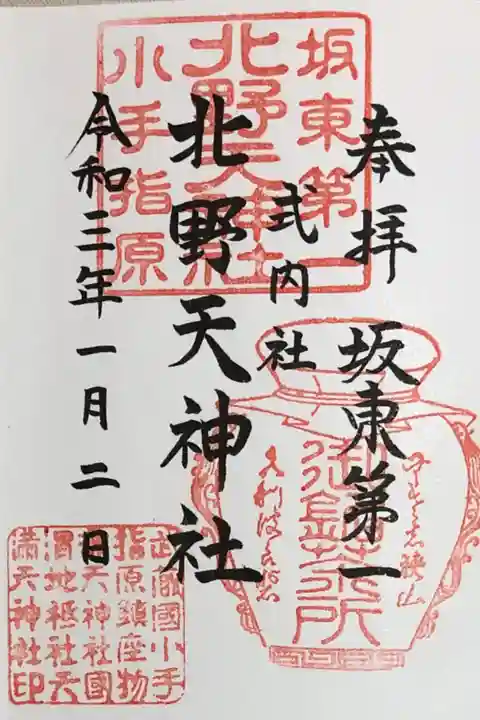 奉拝
坂東第一
式内社
北野天神社
令和三年一月二日
坂東第一
北野天神社
小手指原
御鎮茶所
武蔵國小手
指原鎮座物
部天神社國
渭地祇社天
満天神社印